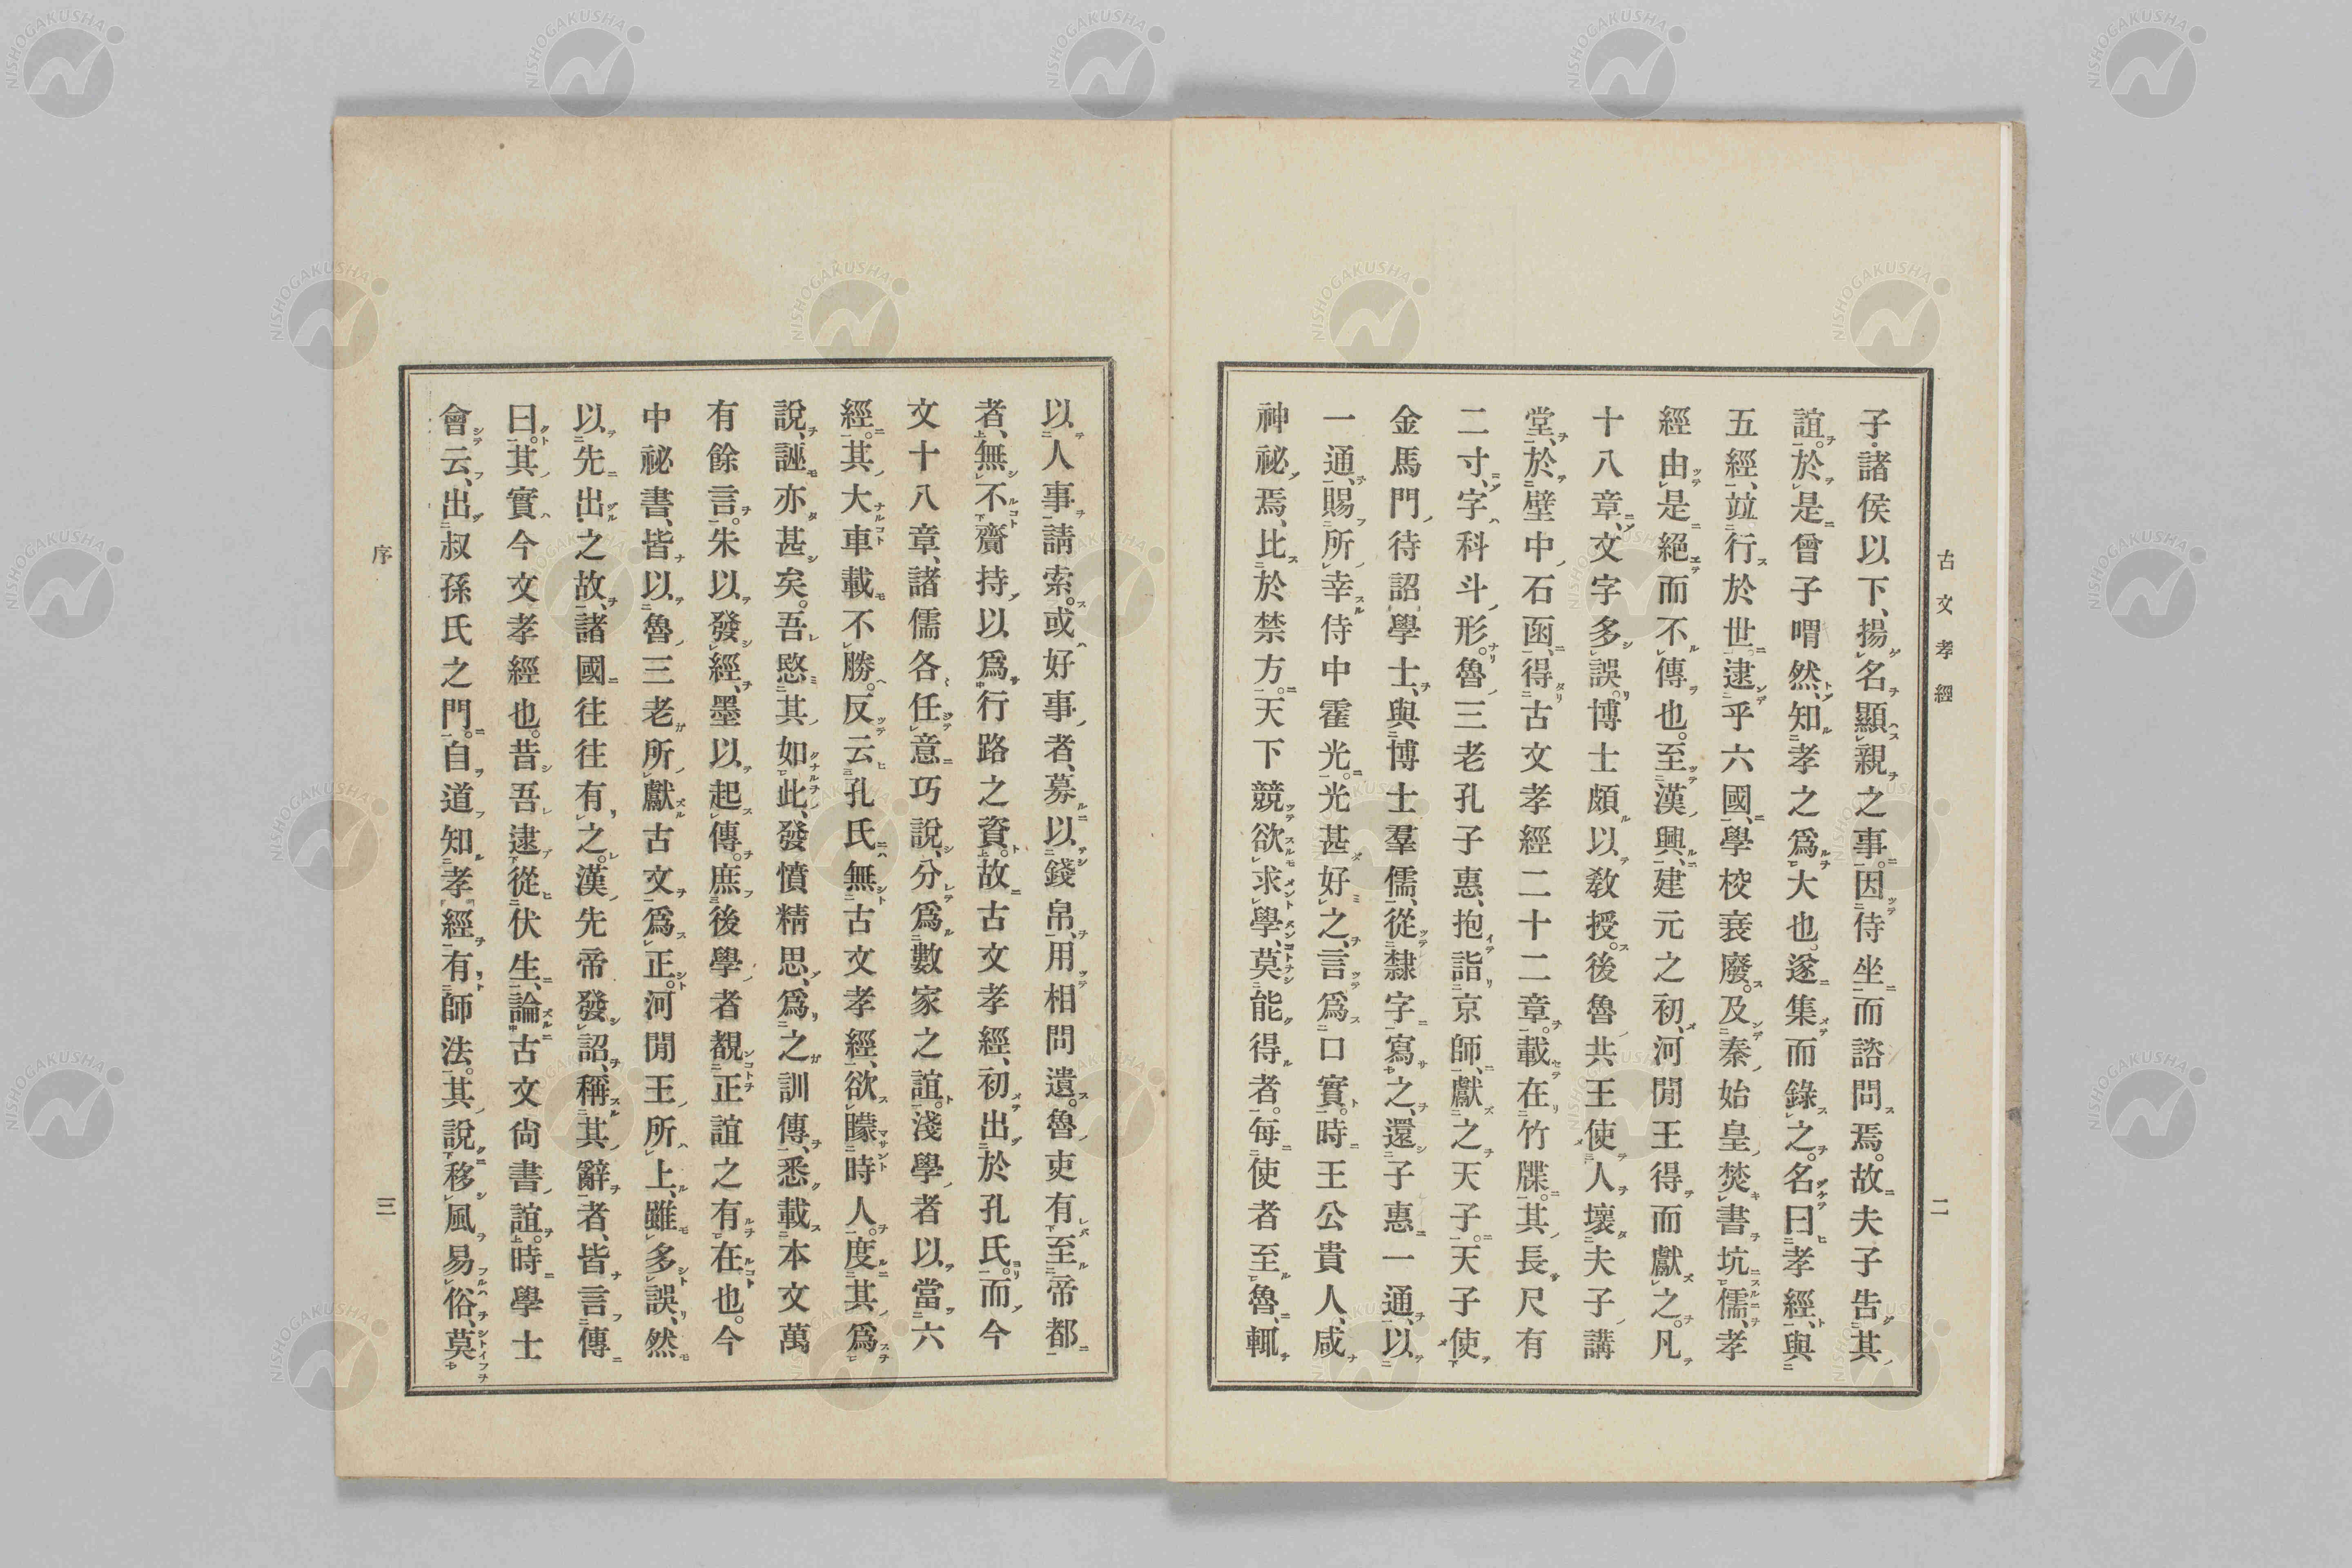 古文孝經
二
子・諸侯以下、揚名顯親之事。因侍坐而諮問焉。故夫子告其
誼。於是曾子喟然、知孝之爲大也。遂集而錄之。名曰孝經、與
五經、竝行於世。逮乎六國、學校衰廢。及秦始皇焚書坑儒、孝
經由是絕而不傳也。至漢興、建元之初、河閒王得而獻之。凡
十八章、文字多誤。博士頗以敎授。後魯共王使人壞夫子講
堂、於壁中石函、得古文孝經二十二章。載在竹牒。其長尺有
二寸、字科斗形。魯三老孔子惠、抱詣京師、獻之天子。天子使
金馬門待詔學士、與博士羣儒、從隸字寫之、還子惠一通、以
一通、賜所幸侍中霍光。光甚好之、言爲口實。時王公貴人、咸
神祕焉、比於禁方。天下競欲求學、莫能得者。每使者至魯、輒
以人事請索。或好事者、募以錢帛、用相問遺。魯吏有至帝都
者、無不齎持以爲行路之資。故古文孝經、初出於孔氏。而今
文十八章、諸儒各任意巧說、分爲數家之誼。淺學者以當六
經。其大車載不勝。反云孔氏無古文孝經、欲矇時人。度其爲
說、誣亦甚矣。吾愍其如此、發憤精思、爲之訓傳、悉載本文萬
有餘言。朱以發經、墨以起傳。庶後學者覩正誼之有在也。今
中祕書、皆以魯三老所獻古文爲正。河閒王所上、雖多誤、然
以先出之故、諸國往往有之。漢先帝發詔、稱其辭者、皆言傳
曰。其實今文孝經也。昔吾逮從伏生、論古文尙書誼。時學士
會云、出叔孫氏之門。自道知孝經有師法。其說移風易俗、莫
序
三
NISHOGAKUSHA